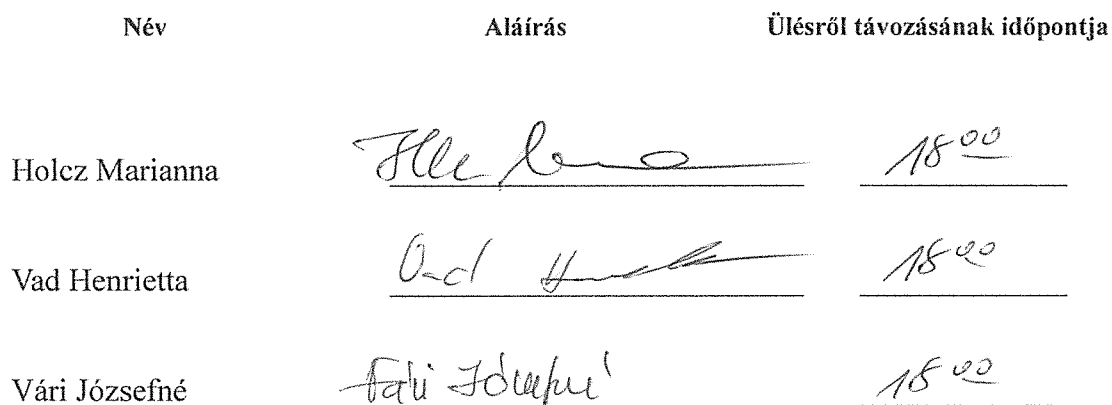 Név Aláírás Ülésről távozásának időpontja
Holcz Marianna 18⁰⁰
Vad Henrietta Vad 18⁰⁰
Vári Józsefné Vári Józsefné 18⁰⁰